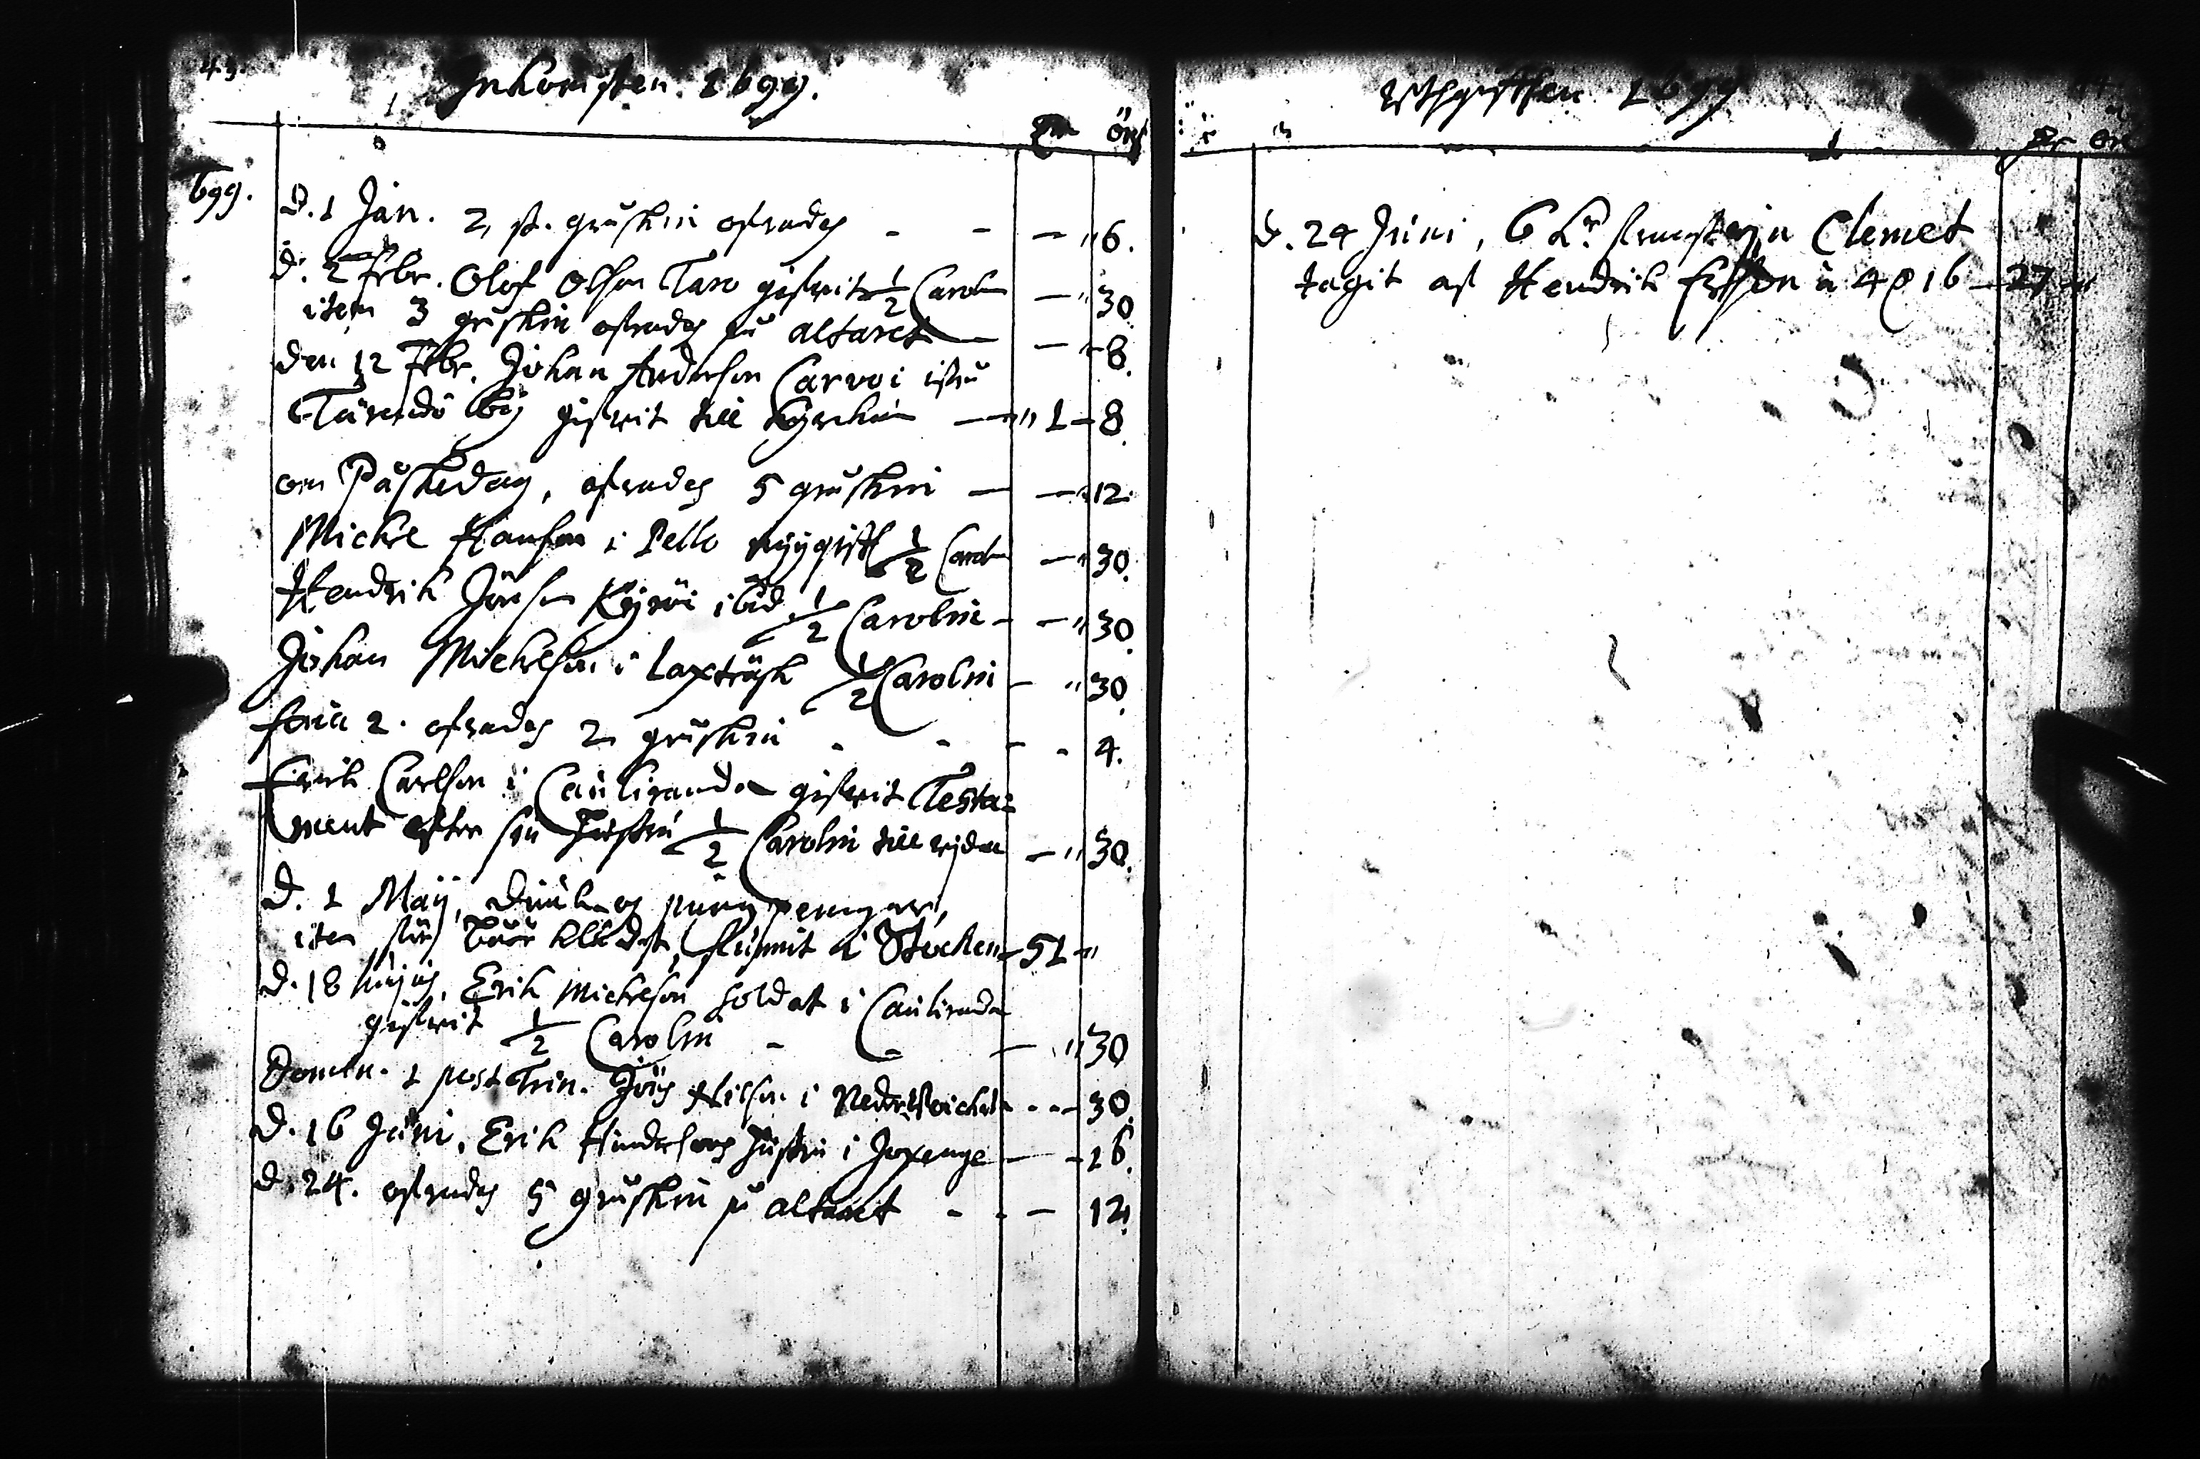 43.
Inkompsten. 1699.
Dr öre
1699.
d. 1 Jan. 2, st. gråskin ofrades - - — " 6.
d. 2 Febr. Olof Olsson Taro gifwit 1/2 Carolin — " 30
item 3 gråskin ofrades på altaret — — - 8.
den 12 Febr. Johan Anderson Carvoi ifrå
Tärendö by gifwit till kyrkian — " 1 - 8.
om Påskedag, ofrades 5 gråskin — — " 12.
Mickel Hansson i Pello nyygifft 1/2 Carolin — " 30.
Hendrik Jönsson Kyröi ibid. 1/2 Carolin - — " 30.
Johan Mickelson i Laxträsk 1/2 Carolin - " 30.
feria 2. ofrades 2 gråskin - - - - 4.
Erich Carlson i Cauliranda gifwit Testa=
ment efter sin hustru 1/2 Carolin till wijdn — " 30.
D. 1 Maij, pungpenngar,
item Stocken - 51 - "
D. 18 hujus, Erik Mickelson soldat i Cauliranda
gifwit 1/2 Carolin - - — " 30
Domin. 1 post Trin. Jöns Nilsson i - - - 30.
D. 16 Juni, Erik hustru i Joxenge — - 16.
D. 24. ofrades 5 gråskin på altaret - - — 12.
Uthgifften 1699
Dr öre
d. 24 Juni, 6 Clemet
tagit af Hendrik Ersson à 4 16 - 27 - "